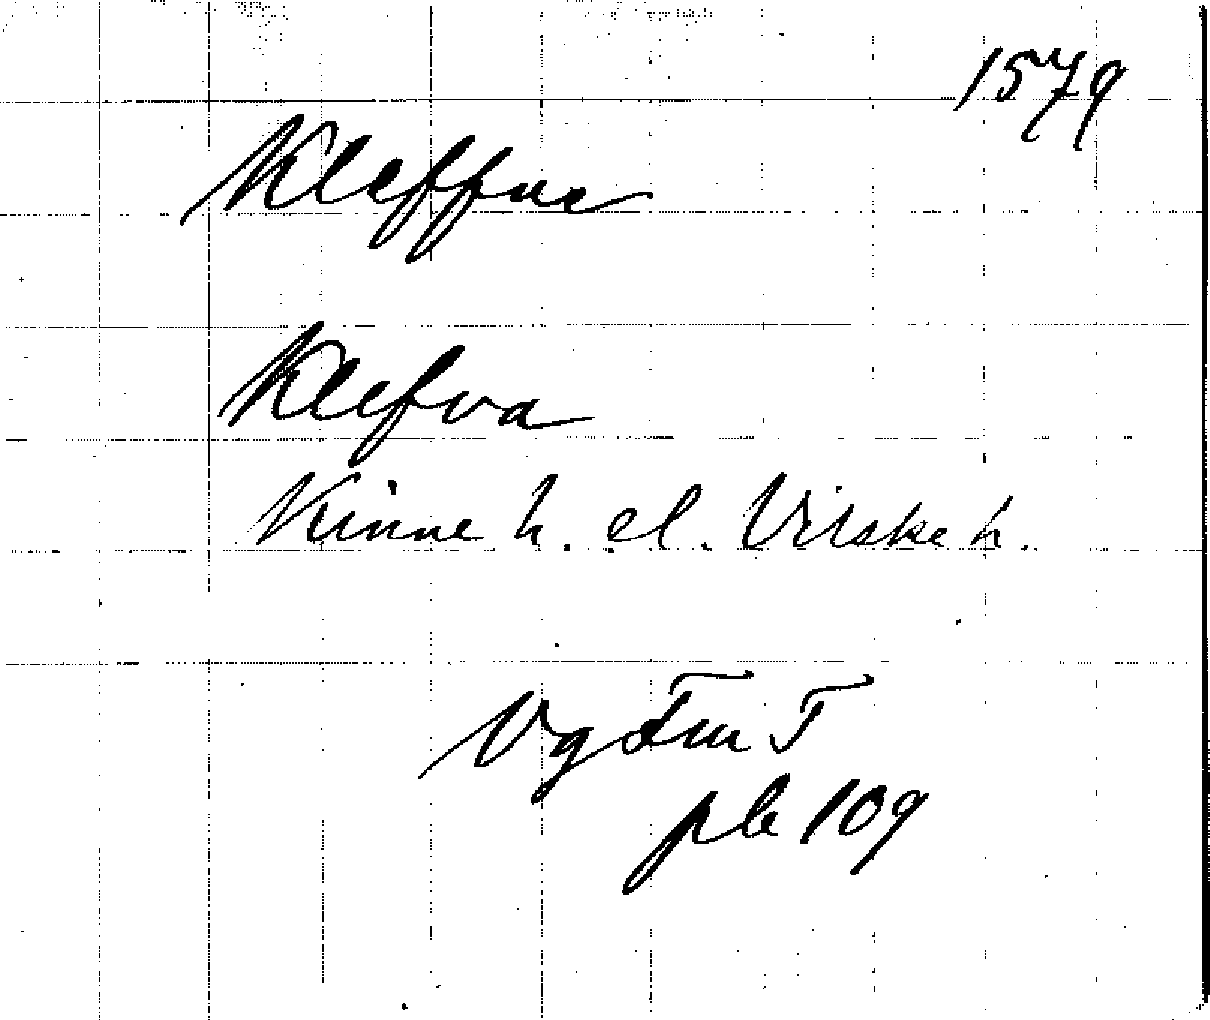 1579
Kleffue
Klefva
Kinne h. el. Vilske h.
Vg
pb 109